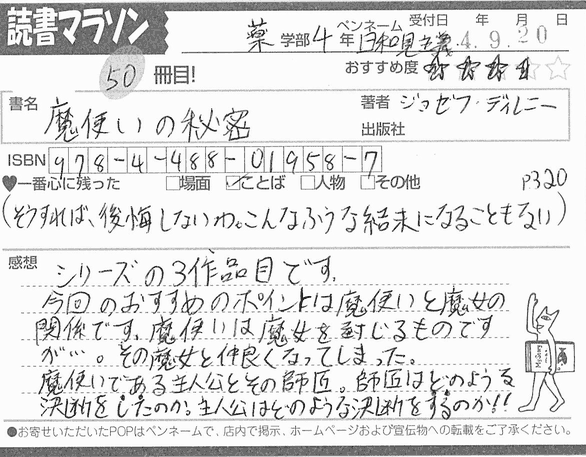 読書マラソン
薬 学部 4 年 ペンネーム 日和見主義 受付日 年 月 日
4.9.20
50 冊目! おすすめ度 ★★★★☆
書名 魔使いの秘密 著者 ジョゼフ・ディレニー
出版社
ISBN 978-4-488-01958-7
♥一番心に残った □場面 ☑ことば □人物 □その他 P320
(そうすれば、後悔しないわ。こんなふうな結末になることもない)
感想 シリーズの3作品目です。
今回のおすすめのポイントは魔使いと魔女の
関係です。魔使いは魔女を封じるものです
が…。その魔女と仲良くなってしまった。
魔使いである主人公とその師匠。師匠はどのような
決断をしたのか。主人公はどのような決断をするのか!!
●お寄せいただいたPOPはペンネームで、店内で掲示、ホームページおよび宣伝物への転載をご了承ください。